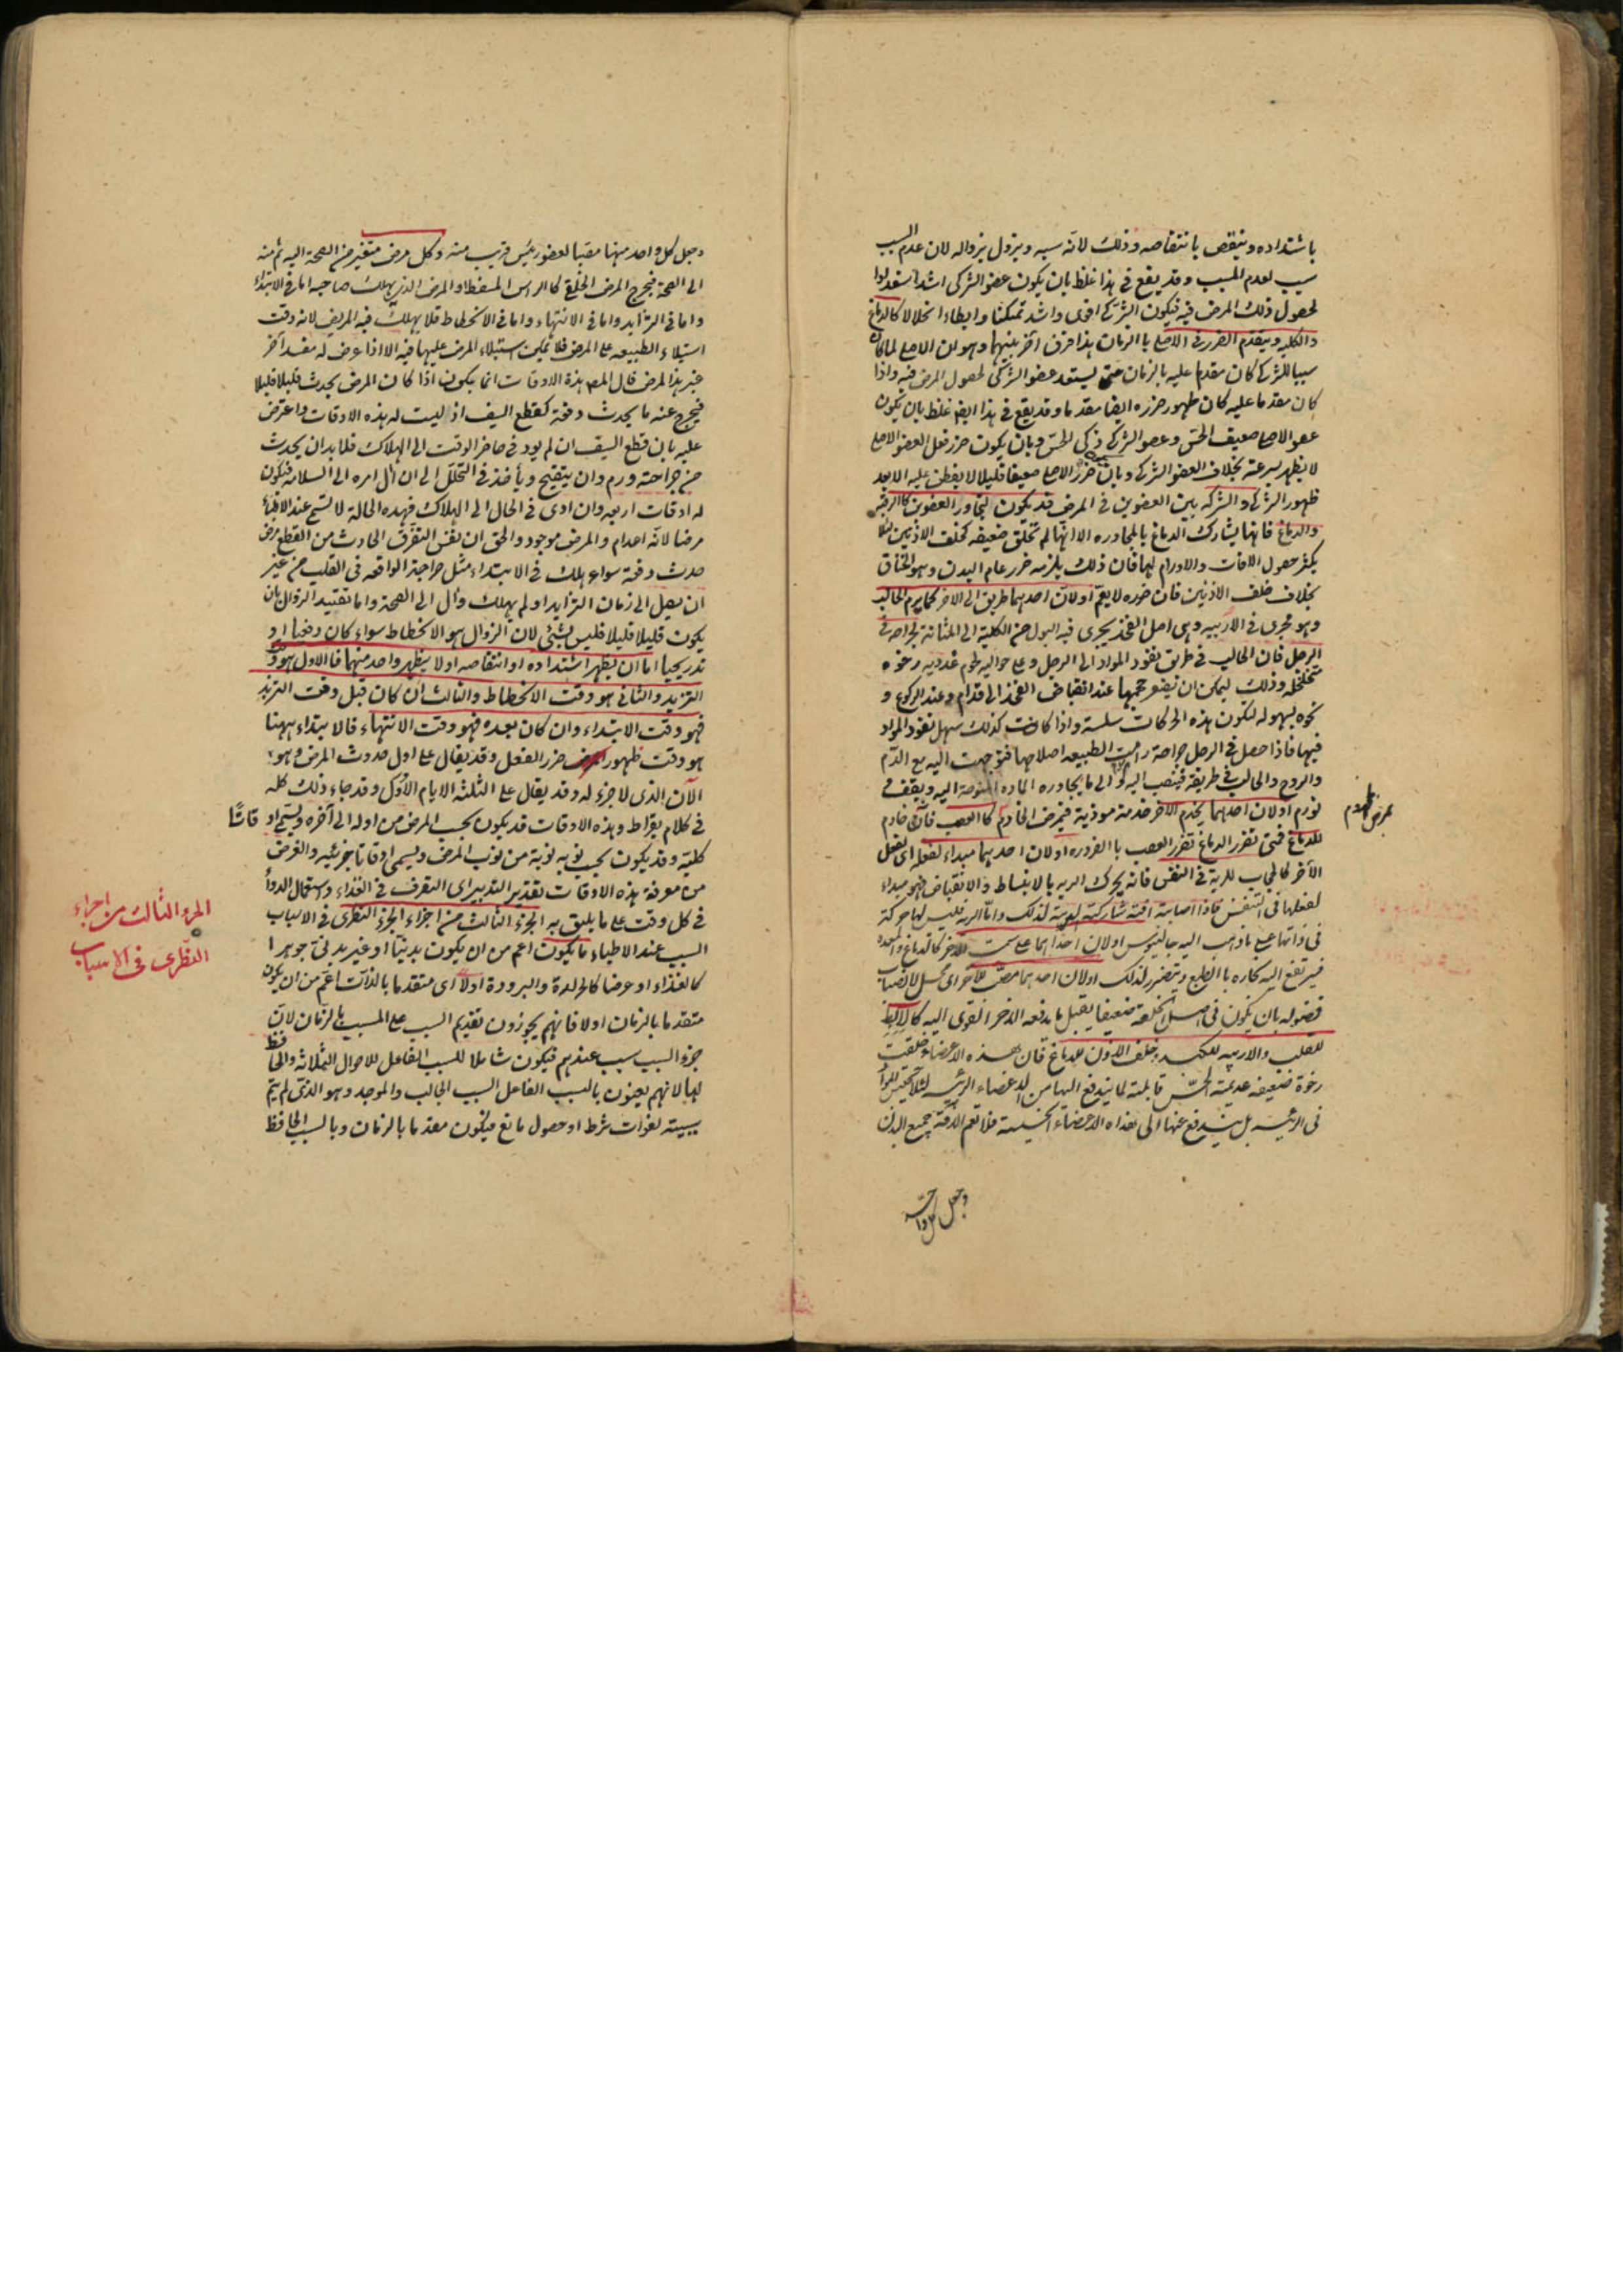 باشتداده وينتقص بانتقاصه وذلك لانه سببه ويزول بزواله لان عدم السبب
سبب لعدم المسبب وقد يقع فى هذا غلط بان يكون عضو الشركى اشد استعدادا
لحصول ذلك المرض فيه فيكون الشركى اقوى واشد تمكنا وابطاء انحلالا كالدماغ
والكليه ويتقدم الضرر فى الاصلى بالزمان هذا فرق آخر بينهما وهو ان الاصلى لما كان
سببا للشركى كان مقدما عليه بالزمان حتى يستعد عضو الشركى لحصول المرض فيه واذا
كان مقدما عليه كان ظهور ضرره ايضا مقدما وقد يقع فى هذا ايضا غلط بان يكون
عضو الاصلى ضعيف الحس وعضو الشركى ذكى الحس وبان يكون ضرر فعل العضو الاصلى
لا يظهر بسرعة بخلاف العضو الشركى وبان ضرر الاصلى ضعيفا قليلا لا يفطن عليه الا بعد
ظهور الشركى والشركه بين العضوين فى المرض قد يكون لتجاور العضوين كالرقبه
والدماغ فانها يشارك الدماغ بالمجاوره الا انها لم تخلق ضعيفه كخلف الاذنين لئلا
يكثر حصول الافات والاورام لهما فان ذلك يلزمه ضرر عام البدن وهو الخناق
بخلاف خلف الاذنين فان ضرره لا يعم اولان احدهما طريق الى الاخر كما يرم الحالب
وهو مجرى فى الاربيه وهى اصل الفخذ يجرى فيه البول من الكلية الى المثانة لجراحة فى
الرجل فان الحالب فى طريق نفوذ المواد الى الرجل وعلى حواليه لحوم غدديه رخوه
متخلخله وذلك ليمكن ان يصغر حجمها عند انقباض الفخذ الى قدام وعند الركوع و
نحوه بسهوله لتكون هذه الحركات سلسة واذا كانت كذلك سهل نفوذ المواد
فيها فاذا حصل فى الرجل جراحة رامت الطبيعه اصلاحها فتوجهت اليه مع الدم
والروح والحالب فى طريقه فينصب اليه والى ما يجاوره الماده المتوجهة اليه ويقف فى
تورم اولان احدهما يخدم الاخر خدمة موذية فيمرض الخادم كالعصب فانه خادم
للدماغ فمتى تضرر الدماغ تضرر العصب بالضروره اولان احدهما مبداء لفعله اى لفعل
الآخر كالحجاب للرية فى النفس فانه يحرك الريه بالانبساط والانقباض فهو مبداء
لفعلها فى التنفس فاذا اصابته افة شاركته الرية لذلك واما الرية فليس لها حركة
فى ذاتها على ما ذهب اليه جالينوس اولان احداهما على سمت الاخر كالدماغ والمعده
فيرتفع اليه بخاره بالطبع ويتضرر لذلك اولان احدهما مصب للآخر اى محل لانصباب
فضوله بان يكون فى اصل الخلقة ضعيفا يقبل ما يدفعه الاخر القوى اليه كالابط
للقلب والاربيه للكبد وخلف الاذن للدماغ فان هذه الاعضاء خلقت
رخوة ضعيفه عديمة الحس قابلة لما يندفع اليها من الاعضاء الرئيسه لئلا تحتبس المواد
فى الرئيسه بل يندفع عنها الى هذه الاعضاء الخسيسة فلا تعم الافة جميع البدن
وجعل كل واحد
وجعل كل واحد منها مصبا لعضو رئيس قريب منه وكل مرض متغير من الصحة اليه ثم منه
الى الصحة فيخرج المرض الخلقى كالراس المسفط او المرض الذى يهلك صاحبه اما فى الابتداء
واما فى التزايد واما فى الانتهاء واما فى الانحطاط فلا يهلك فيه المريض لانه وقت
استيلاء الطبيعه على المرض فلا يمكن استيلاء المرض عليها فيه الا اذا عرض له مفسد آخر
غير هذا المرض قال المص هذه الاوقات انما يكون اذا كان المرض يحدث قليلا قليلا
فيخرج عنه ما يحدث دفعة كقطع السيف اذ ليست له هذه الاوقات واعترض
عليه بان قطع السيف ان لم يود فى حاضر الوقت الى الهلاك فلا بد ان يحدث
من جراحته ورم وان يتقيح ويأخذ فى التحلل الى ان آل امره الى السلامة فيكون
له اوقات اربعه وان ادى فى الحال الى الهلاك فهذه الحالة لا تسمى عند الاطباء
مرضا لانه اعدام والمرض موجود والحق ان نفس التفرق الحادث من القطع مرض
حدث دفعة سواء هلك فى الابتداء مثل جراحة الواقعه فى القلب من غير
ان يصل الى زمان التزايد او لم يهلك وآل الى الصحة واما تقييد الزوال بان
يكون قليلا قليلا فليس بشئ لان الزوال هو الانحطاط سواء كان دفعيا او
تدريجيا اما ان يظهر اشتداده او انتقاصه او لا يظهر واحد منهما فالاول هو وقت
التزيد والثانى هو وقت الانحطاط والثالث ان كان قبل وقت التزيد
فهو وقت الابتداء وان كان بعده فهو وقت الانتهاء فالابتداء ههنا
هو وقت ظهور ضرر الفعل وقد يقال على اول حدوث المرض وهو
الآن الذى لا جزء له وقد يقال على الثلثه الايام الاول وقد جاء ذلك كله
فى كلام بقراط وهذه الاوقات قد يكون بحسب المرض من اوله الى آخره ويسمى اوقاتا
كلية وقد يكون بحسب نوبه نوبة من نوب المرض ويسمى اوقاتا جزئيه والغرض
من معرفة هذه الاوقات تقدير التدبير اى التصرف فى الغذاء واستعمال الدواء
فى كل وقت على ما يليق به الجزء الثالث من اجزاء الجزء النظرى فى الاسباب
السبب عند الاطباء ما يكون اعم من ان يكون بدنيا او غير بدنى جوهرا
كالغذاء او عرضا كالحرارة والبرودة اولا اى متقدما بالذات اعم من ان يكون
متقدما بالزمان اولا فانهم يجوزون تقديم السبب على المسبب بالزمان لان
جزء السبب سبب عندهم فيكون شاملا للسبب الفاعل للاحوال الثلاثة والحافظ
لها لانهم يعنون بالسبب الفاعل السبب الجالب والموجد وهو الذى لم يتم
سببيته لفوات شرط او حصول مانع فيكون مقدما بالزمان وبالسبب الحافظ
الجزء الثالث من اجزاء
النظرى فى الاسباب